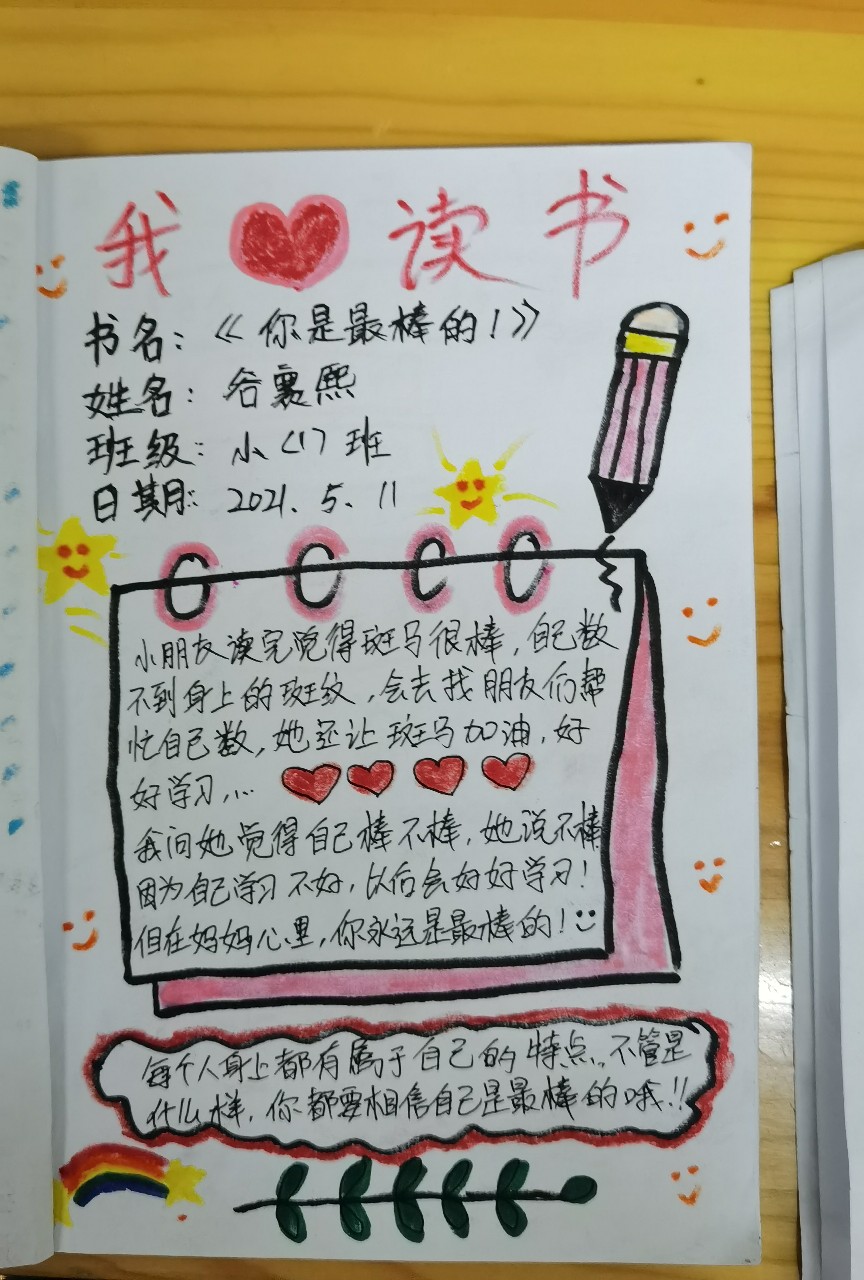 我 读书
书名：《你是最棒的！》
姓名：谷襄熙
班级：小〈1〉班
日期：2021.5.11
小朋友读完觉得斑马很棒，自己数
不到身上的斑纹，会去找朋友们帮
忙自己数，她还让斑马加油，好
好学习...
我问她觉得自己棒不棒，她说不棒
因为自己学习不好，以后会好好学习！
但在妈妈心里，你永远是最棒的！
每个人身上都有属于自己的特点，不管是
什么样，你都要相信自己是最棒的哦！！